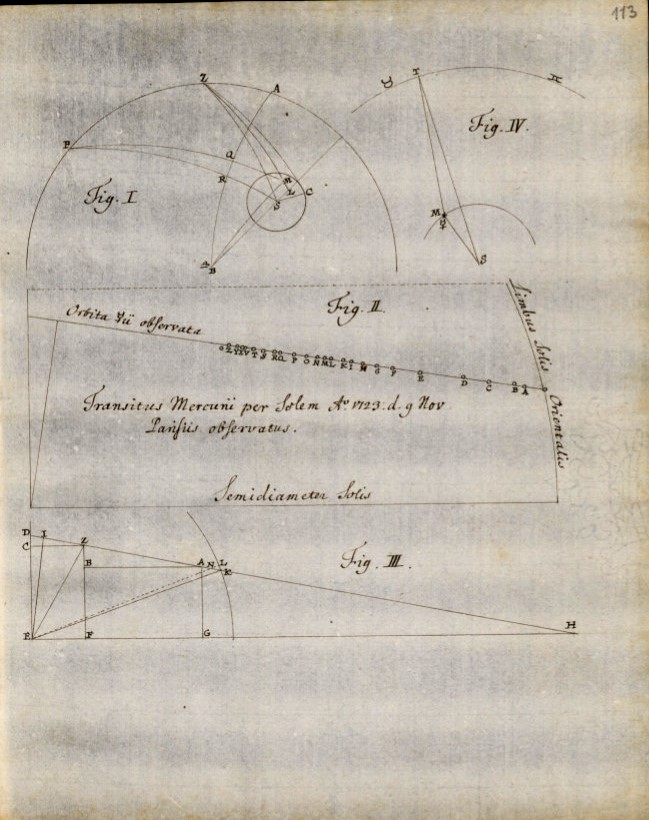 113
Z
A
P
Q
R
Fig. I
M
L
C
S
B
♉ T ♊
Fig. IV.
M
☿
S
Fig. II.
Orbita ☿ii observata
Limbus Solis Orientalis
Z Y X V T S R Q P O N M L K I H G F E D C B A
Transitus Mercurii per Solem Aº. 1723. d. 9 Nov
Parisiis observatus.
Semidiameter Solis
D I Z
C
B A N L
K
Fig. III.
E F G H